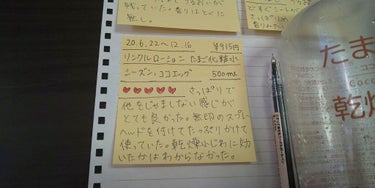 無し。
20.6.22～12.16 ¥915円
リンクルローション たまご化粧水
シーズン, ココエッグ 500ml
さっぱりで
他をじゃましない感じが
とても良かった。無印のスプレー
ヘッドを付けてたっぷりかけて
使っていた。乾燥小じわに効
いたかはわからなかった。
たま
乾燥